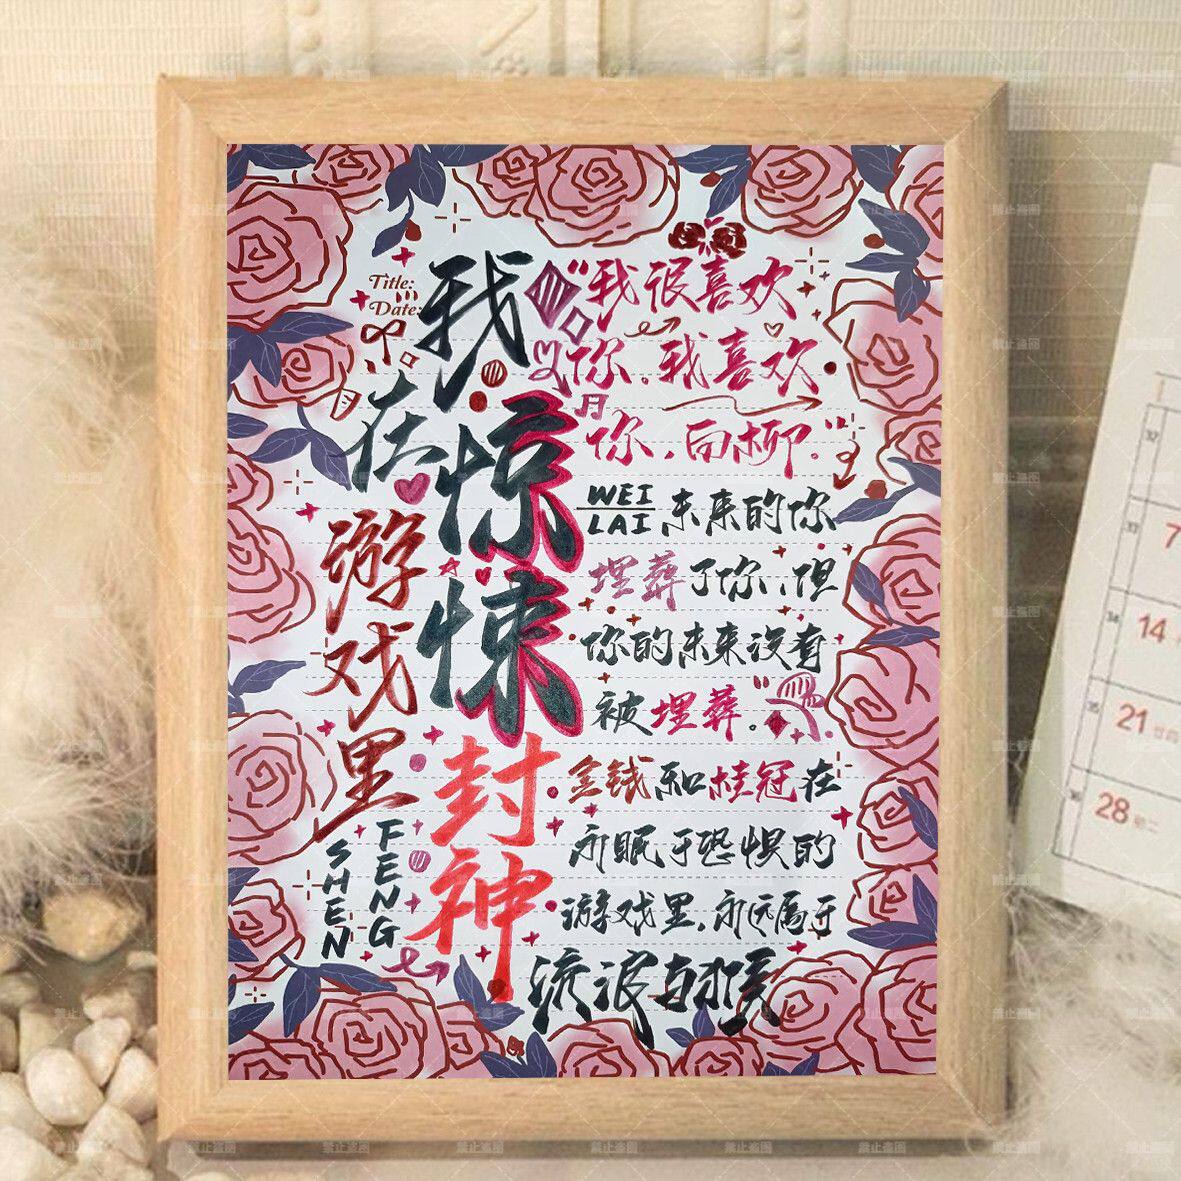 Title:
Date:
我在
惊悚
游戏里
封神
FENG
SHEN
"我很喜欢
你,我喜欢
你,白柳."
WEI
LAI
未来的你
埋葬了你,但
你的未来没有
被埋葬。"
金钱和桂冠在
永眠于恐惧的
游戏里,永远属于
流浪
7
14
21
28
禁止盗图